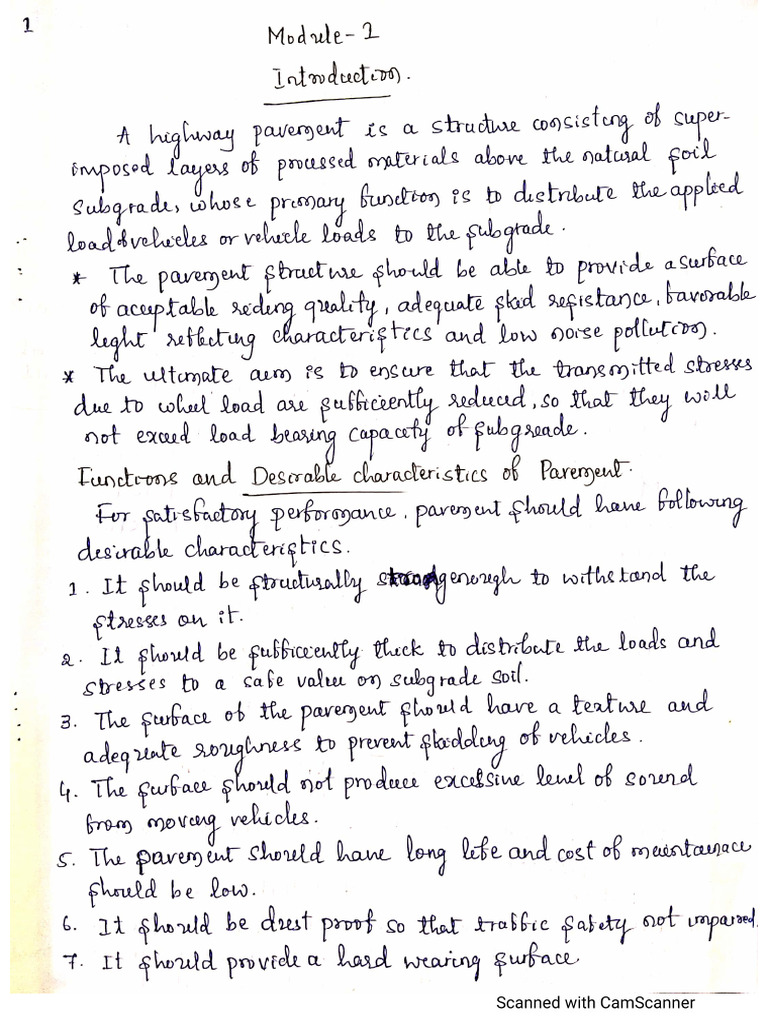 1
Module-1
Introduction.
A highway pavement is a structure consisting of super-
imposed layers of processed materials above the natural soil
subgrade, whose primary function is to distribute the applied
load of vehicles or vehicle loads to the subgrade.
* The pavement structure should be able to provide a surface
of aceptable reding quality, adequate skid resistance, favorable
light reflecting characteristics and low noise pollution.
* The ultimate aim is to ensure that the transmitted stresses
due to wheel load are sufficiently reduced, so that they will
not exceed load bearing capacity of subgreade.
Functions and Desirable characteristics of Pavement.
For satisfactory performance, pavement should have following
desirable characteristics.
1. It should be structurally strong enough to withstand the
stresses on it.
2. It should be sufficiently thick to distribute the loads and
stresses to a safe value on subgrade soil.
3. The surface of the pavement should have a texture and
adequate roughness to prevent skidding of vehicles.
4. The surface should not produce excessive level of sound
from moving vehicles.
5. The pavement should have long life and cost of maintainace
should be low.
6. It should be dust proof so that traffic safety not impaired.
7. It should provide a hard wearing surface
Scanned with CamScanner